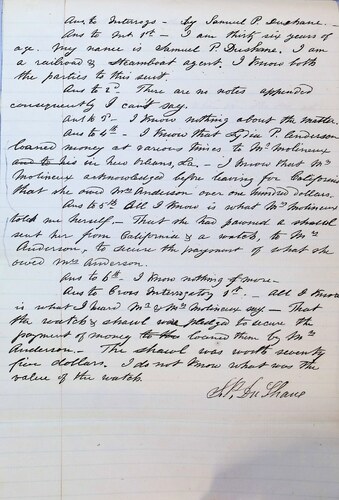 Ans to Interrogs - by Samuel P. Dushane. -
Ans to Int. 1st - I am thirty six years of
age. My name is Samuel P. Dushane. I am
a railroad & Steamboat agent. I know both
the parties to this suit.
Ans to 2d. There are no notes appended
consequently I can't say.
Ans to 3d - I know nothing about the matter.
Ans to 4th - I know that Lydia P. Anderson
loaned money at various times to Mrs Molineux
and to his in New Orleans, La, - I know that Mrs
Molineux acknowledged before leaving for California
that she owed Mrs Anderson over one hundred dollars.
Ans to 5th All I know is what Mrs Molineux
told me herself - That she had pawned a shawl
sent her from California & a watch, to Mrs
Anderson, to secure the payment of what she
owed Mrs Anderson.
Ans to 6th - I know nothing of more -
Ans to Cross Interrogatory 1st - All I know
is what I heard Mr & Mrs Molineux say - That
the watch & shawl was pledged to secure the
payment of money to loaned them by Mrs
Anderson - The shawl was worth seventy
five dollars. I do not know what was the
value of the watch
S. P. DuShane